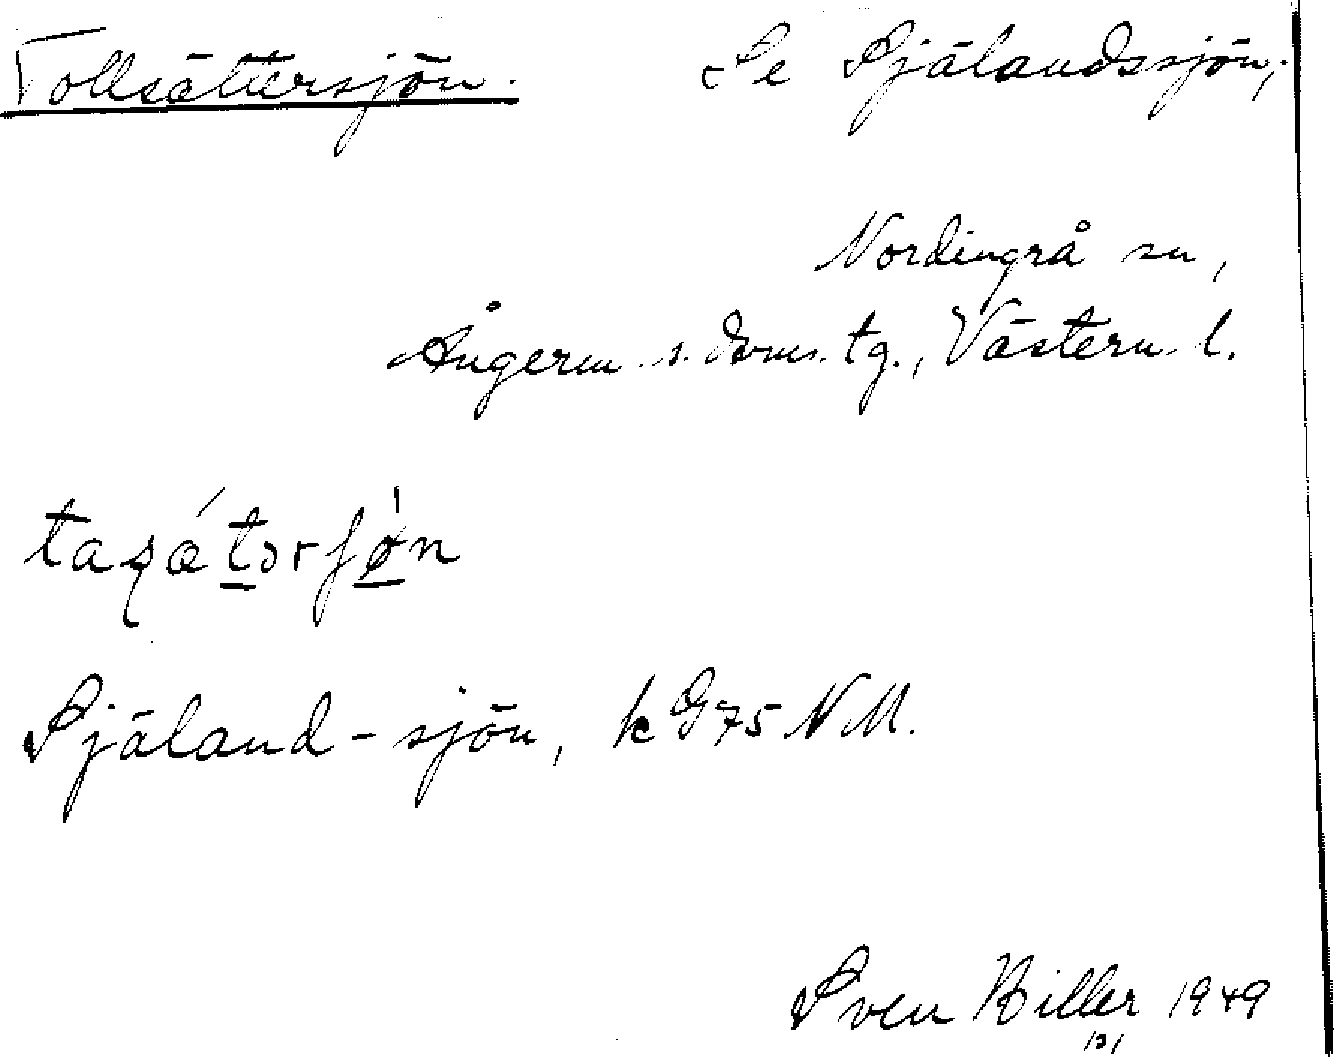 Tollsättersjön. Se Själandssjön,
Nordingrå sn,
Ångerm. s. doms. tg., Västern. l.
Själand-sjön, k G75 NM.
Sven Hiller 1949